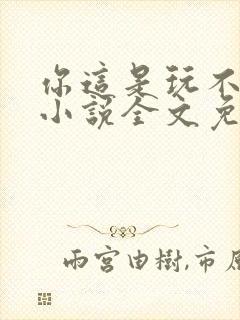 你這是玩不
小說全文免
雨宮由樹,市原